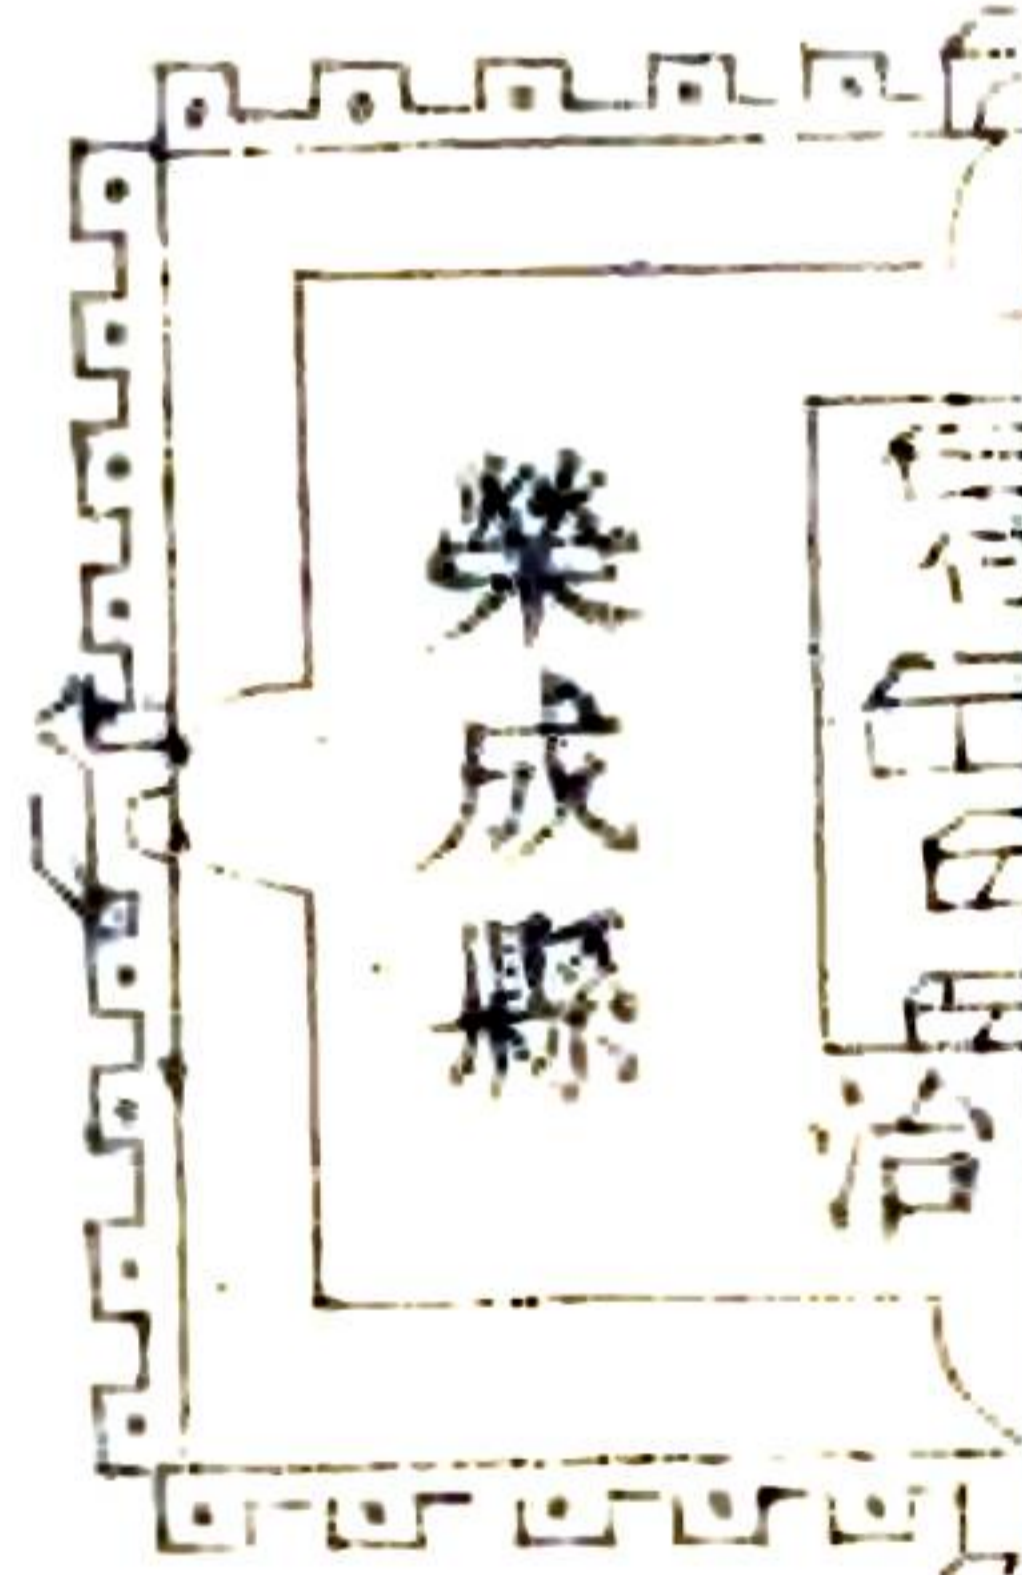 榮成縣
治